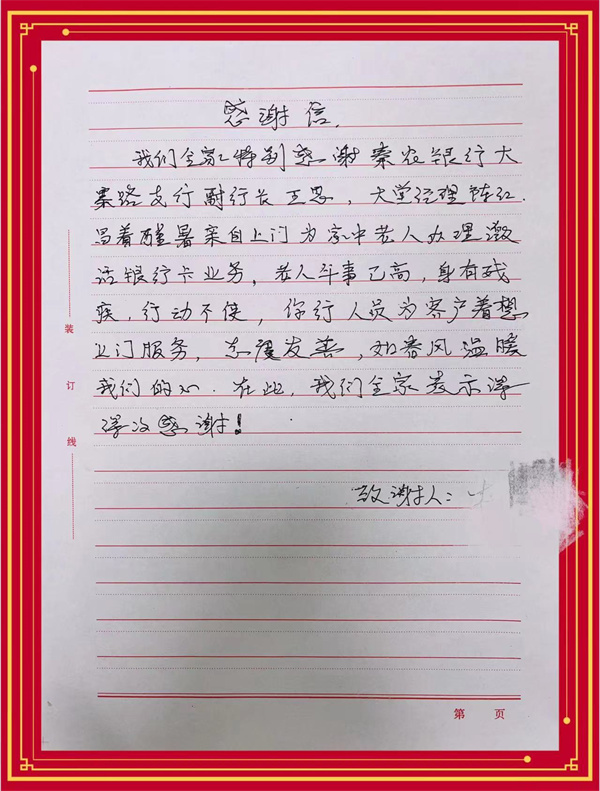 感谢信.
我们全家特别感谢秦农银行大
寨路支行副行长王思，大堂经理陈红.
冒着酷暑亲自上门为家中老人办理激
活银行卡业务，老人年事已高，身有残
疾，行动不便，你行人员为客户着想
上门服务，态度友善，如春风温暖
我们的心.在此，我们全家表示深
深的感谢！
致谢人：
装
订
线
第 页